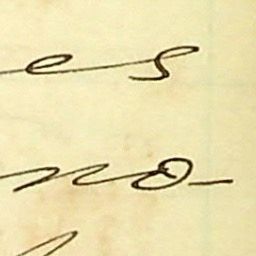 es
no-